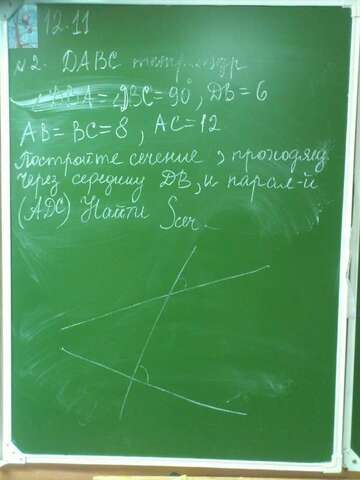 12.11
№2. DABC тетраэдр
∠DBA = ∠DBC = 90°, DB = 6
AB = BC = 8, AC = 12
Постройте сечение, проходящ
через середину DB, и парал-й
(ADC) Найти Sсеч.